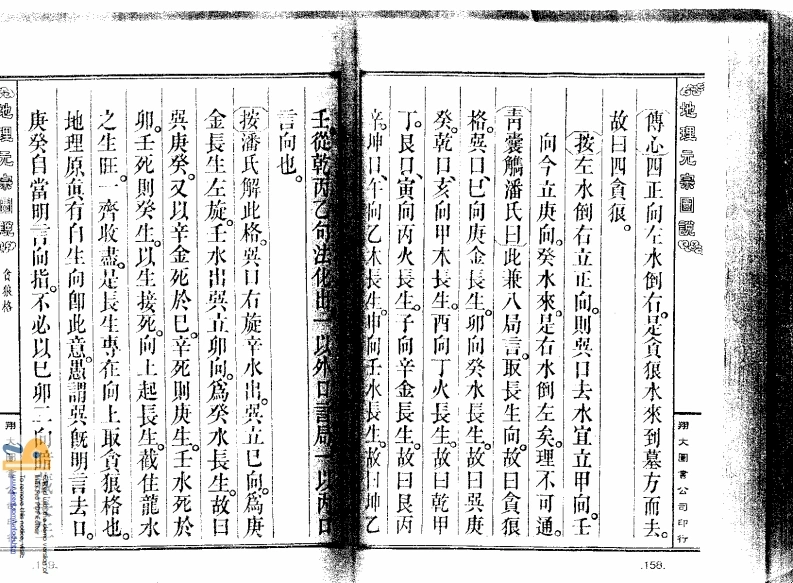 地理元宗圖說
傳心四正向左水倒右。是貪狼水來到墓方而去。
故曰四貪狼。
按左水倒右立正向。則巽口去水宜立甲向。壬
向今立庚向。癸水來。是右水倒左矣。理不可通。
青囊觽潘氏曰此兼八局言。取長生向。故曰貪狼
格。巽口巳向庚金長生。卯向癸水長生。故曰巽庚
癸。乾口亥向甲木長生。酉向丁火長生。故曰乾甲
丁。艮口寅向丙火長生。子向辛金長生。故曰艮丙
辛。坤口申向壬水長生。故曰坤
壬從乾丙乙句法化出。一以外口言局。一以內口
言向也。
按潘氏解此格。巽口右旋辛水出。巽立巳向。爲庚
金長生左旋。壬水出巽立卯向。爲癸水長生。故曰
巽庚癸。又以辛金死於巳。辛死則庚生。壬水死於
卯。壬死則癸生。以生接死。向上起長生。截住龍水
之生旺。一齊收盡。是長生專在向上取貪狼格也。
地理原眞有自生向卽此意。愚謂巽旣明言去口。
庚癸自當明言向指。不必以巳卯二向暗
地理元宗圖說
貪狼格
翔大圖書公司印行
翔大圖
.158.